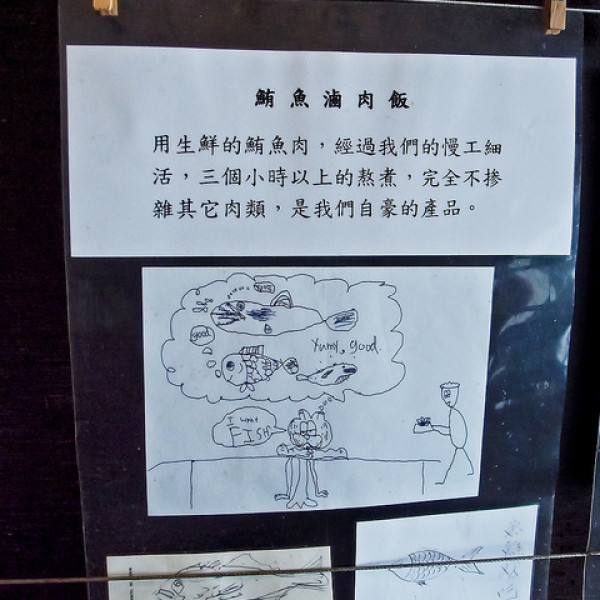 鮪魚滷肉飯
用生鮮的鮪魚肉，經過我們的慢工細
活，三個小時以上的熬煮，完全不摻
雜其它肉類，是我們自豪的產品。
good
Yumy, good.
I WANT
FISH